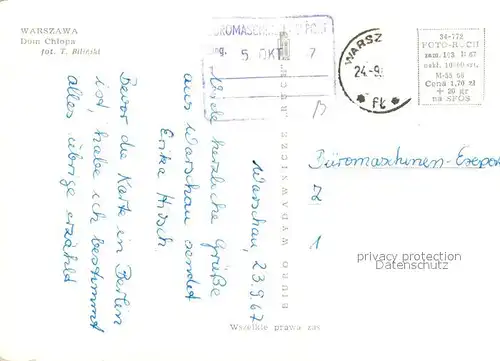 WARSZAWA
Dom Chłopa
fot. T. Biliński
BÜROMASCHINEN-EXPORT
ing. 5. OKT. 7
WARSZ
24-9
FŁ
34-772
FOTO-RUCH
zam. 103 II 67
nakł. 10+90 ert.
M-55 66
Cena 1,70 zł
+ 20 gr
na SFOS
Warschau, 23.9.67
Viele herzliche Grüße
aus Warschau sendet
Erika Hirsch
Bevor die Karte in Berlin
ist, habe ich bestimmt
alles übrige erzählt
BIURO WYDAWNICZE „RUCH"
Büromaschinen-Expor
Z
1
privacy protection
Datenschutz
Wszelkie prawa zas